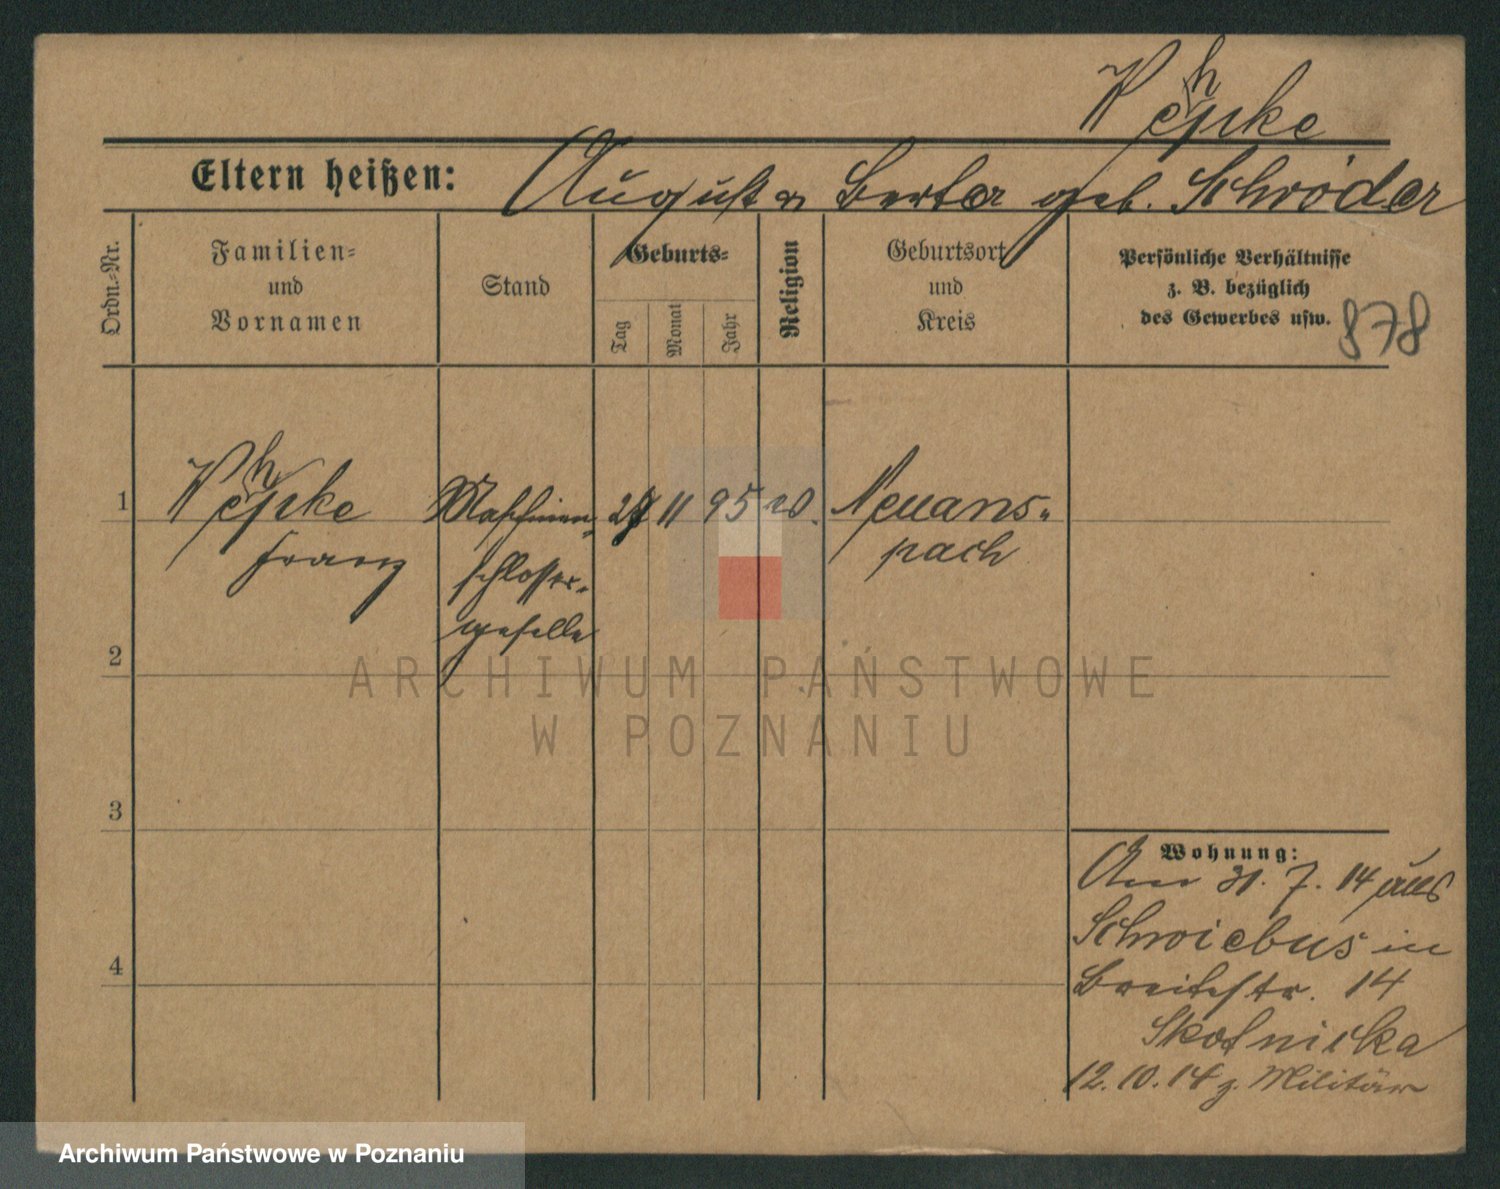 Wehpke
Eltern heißen: August u Berta geb. Schröder
Ordn.-Nr.
Familien-
und
Vornamen
Stand
Geburts-
Tag
Monat
Jahr
Religion
Geburtsort
und
Kreis
Persönliche Verhältnisse
z. B. bezüglich
des Gewerbes usw.
878
1
Wehpke
Franz
Maschinen-
schlosser-
geselle
11 95
Neuans-
pach
2
3
4
Wohnung:
Am 31. 7. 14 aus
Schwiebus in
Breitestr. 14
Skotnicka
12.10.14 z. Militär
ARCHIWUM PAŃSTWOWE
W POZNANIU
Archiwum Państwowe w Poznaniu